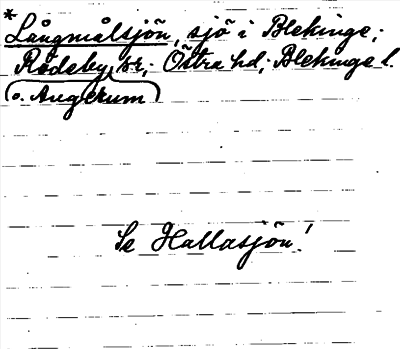 * Långmålsjön, sjö i Blekinge;
Rödeby sn; Östra hd; Blekinge l.
(o. Augerum)
Se Hallasjön!